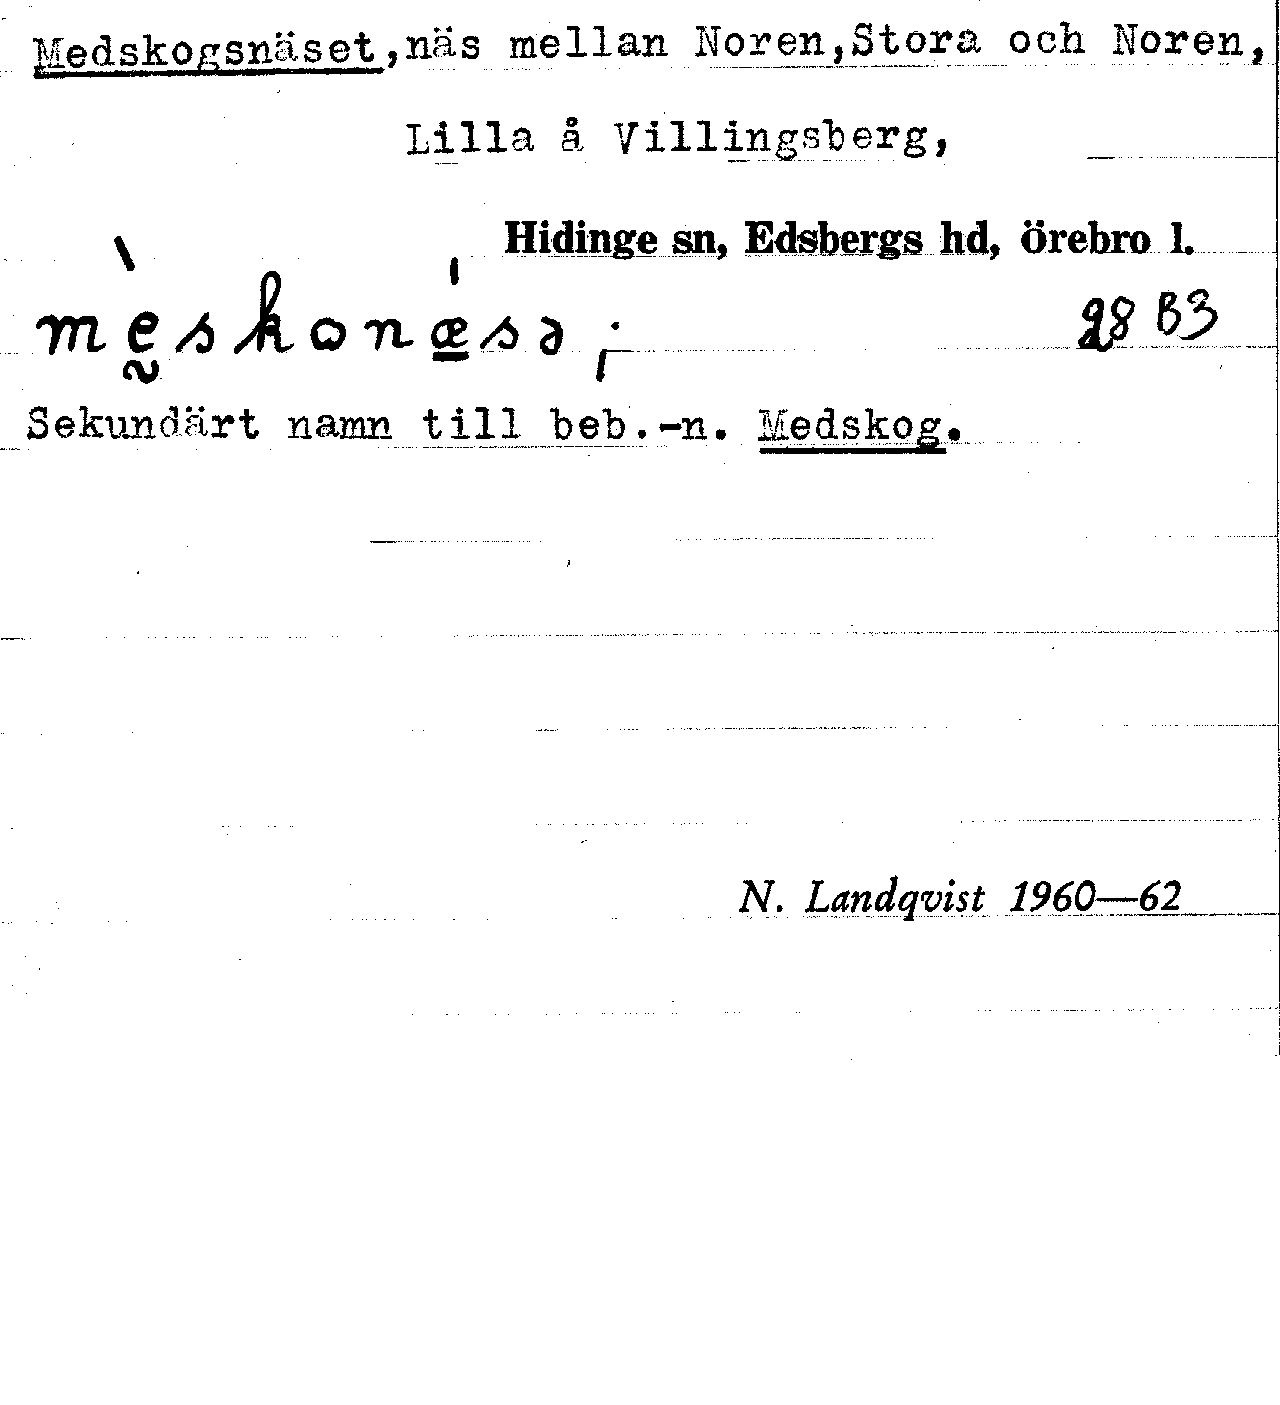 Medskogsnäset, näs mellan Noren, Stora och Noren,
Lilla å Villingsberg,
Hidinge sn, Edsbergs hd, örebro l.
mḛ̀skonǽ̲sə ;
28 B3
Sekundärt namn till beb.-n. Medskog.
N. Landqvist 1960—62